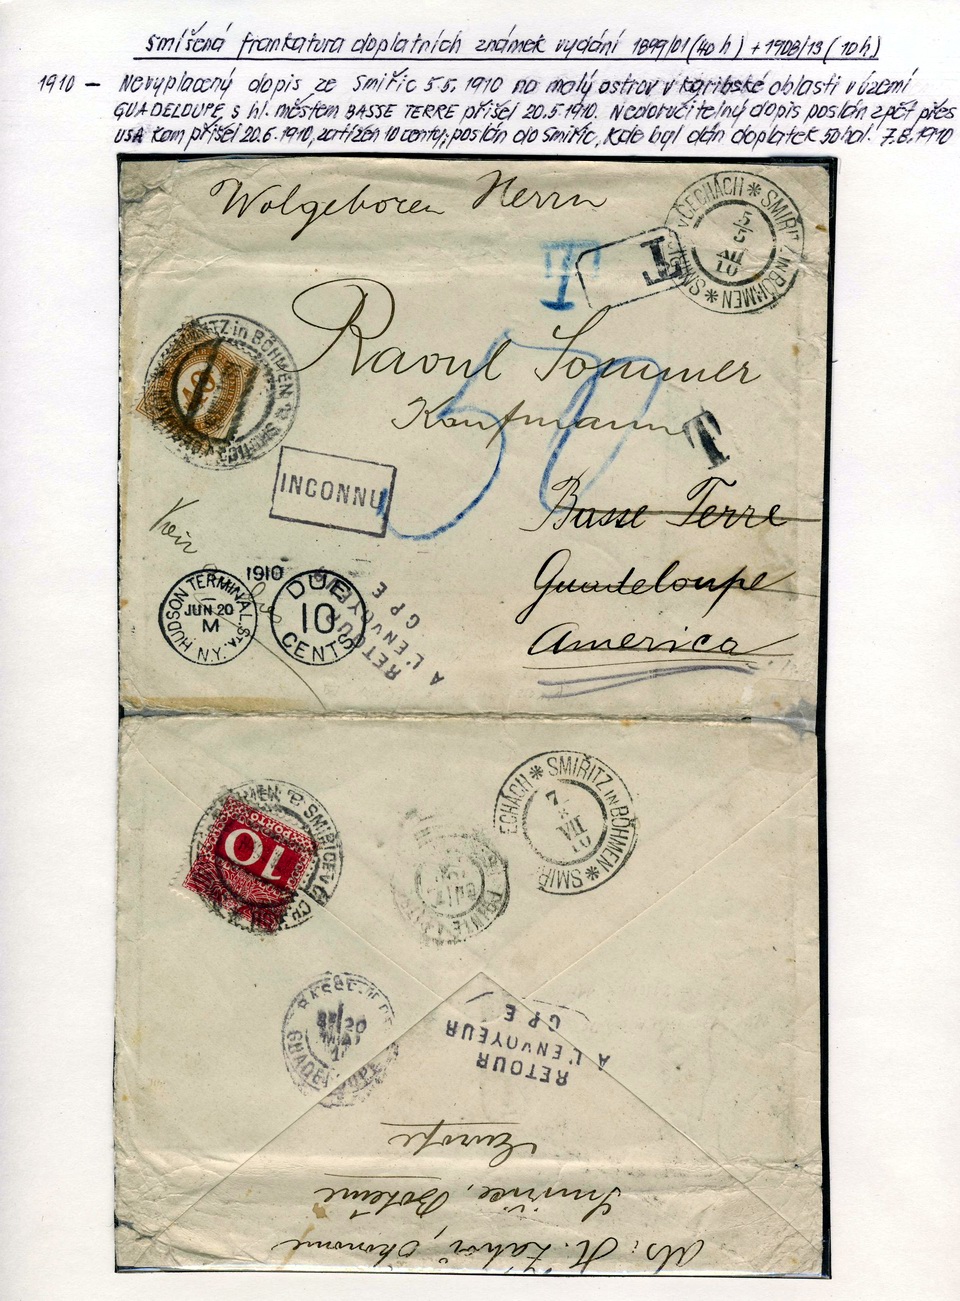 Smíšená frankatura doplatních známek vydání 1899/01 (40 h) + 1908/13 (10 h)
1910 – Nevyplacený dopis ze Smiřic 5.5.1910 na malý ostrov v karibské oblasti v území
GUADELOUPE, s hl. městem BASSE TERRE přišel 20.5.1910. Nedoručitelný dopis poslán zpět přes
USA kam přišel 20.6.1910, zatížen 10 centy, poslán do Smiřic, kde byl dán doplatek 50 hal. 7.8.1910
Wolgeboren Herrn
V ČECHÁCH * SMIŘITZ IN BÖHMEN * SMIŘ
5
5
10
T
T
Raoul Sommer
Kaufmann
50
T
40
ITZ in BÖHMEN
INCONNU
Basse Terre
Guadeloupe
America
Voir
HUDSON TERMINAL STA.
JUN 20
M
N.Y.
1910
DUE
10
CENTS
RETOUR
A L'ENVOYEUR
GPE
ECHÁCH * SMIŘITZ IN BÖHMEN * SMIŘ
7
VII
10
10
SMIŘICE V
POINTE
BASSE-TERRE
20
MAI
GUADELOUPE
RETOUR
A L'ENVOYEUR
GPE
Europe
Smiřice, Bohême